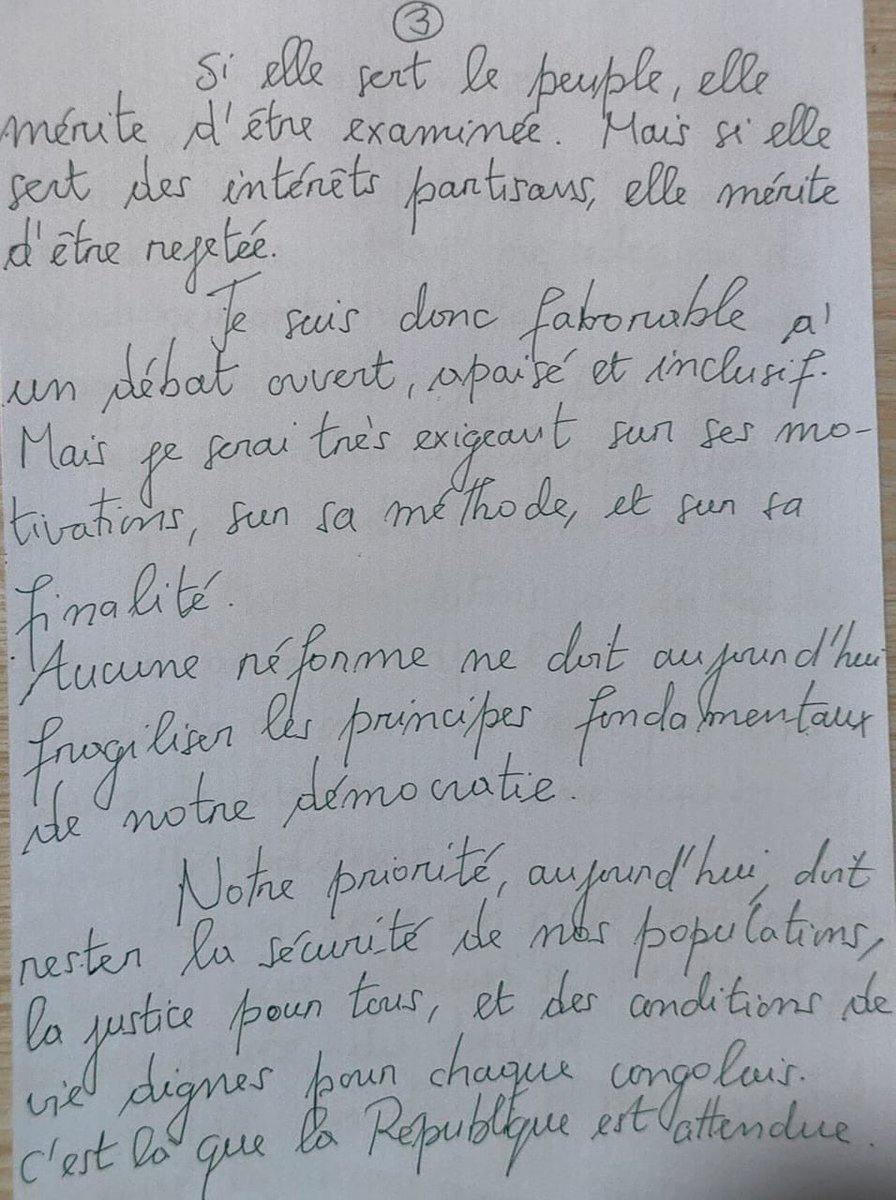 ③
Si elle sert le peuple, elle
mérite d'être examinée. Mais si elle
sert des intérêts partisans, elle mérite
d'être rejetée.
Je suis donc favorable à
un débat ouvert, apaisé et inclusif.
Mais je serai très exigeant sur ses mo-
tivations, sur sa méthode, et sur sa
finalité.
Aucune réforme ne doit aujourd'hui
fragiliser les principes fondamentaux
de notre démocratie.
Notre priorité, aujourd'hui, doit
rester la sécurité de nos populations,
la justice pour tous, et des conditions de
vie dignes pour chaque congolais.
C'est là que la République est attendue.